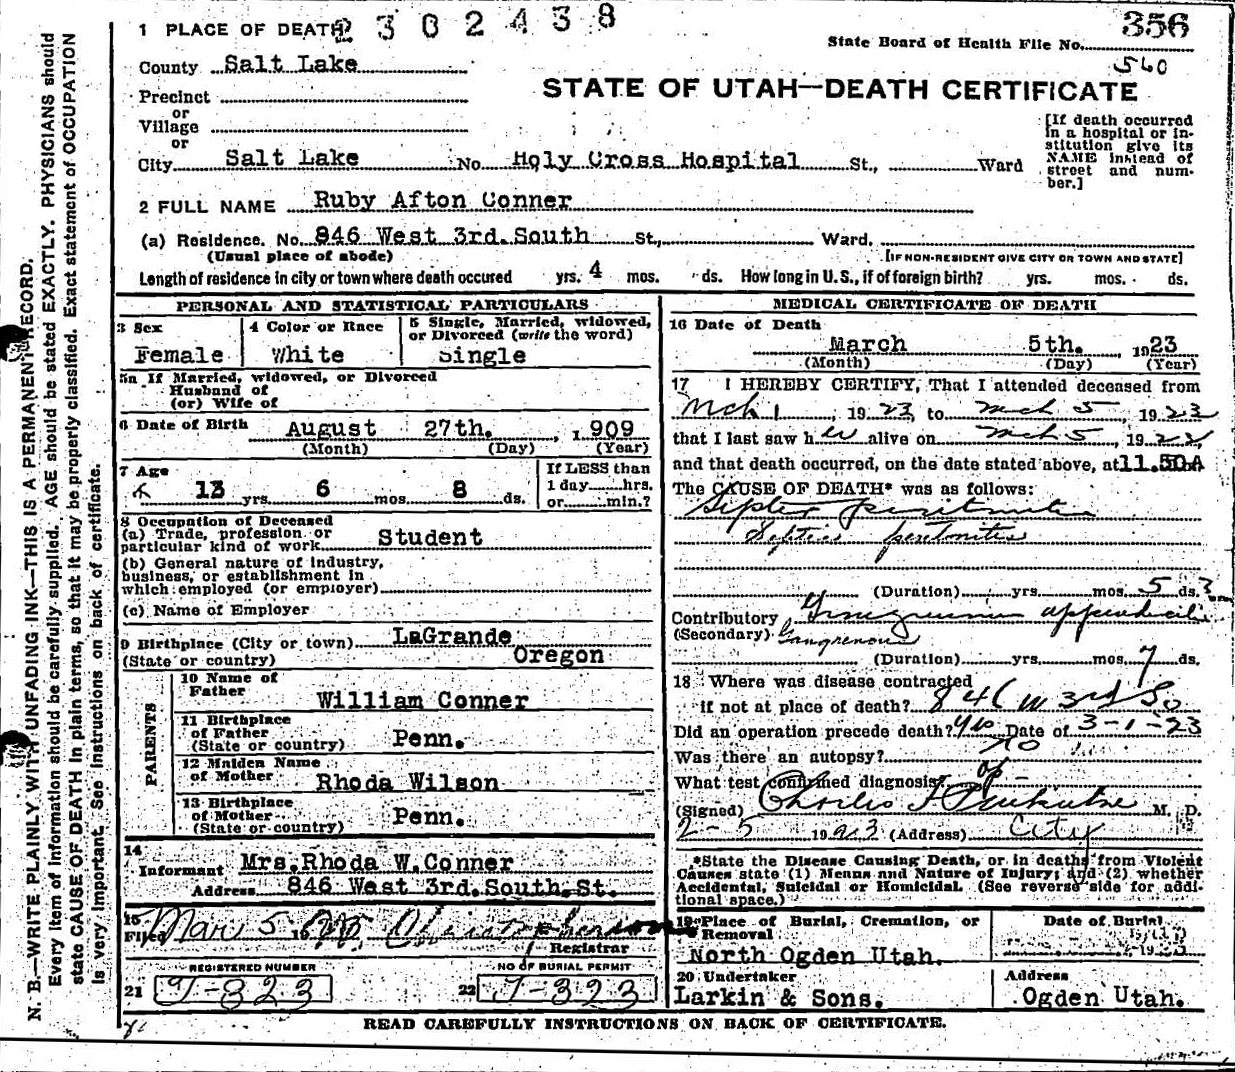 1 PLACE OF DEATH 2302438
State Board of Health File No. 356
County Salt Lake
560
STATE OF UTAH—DEATH CERTIFICATE
Precinct
or
Village
or
City Salt Lake No. Holy Cross Hospital St., Ward
[If death occurred
in a hospital or in-
stitution give its
NAME instead of
street and num-
ber.]
2 FULL NAME Ruby Afton Conner
(a) Residence. No. 846 West 3rd. South St., Ward.
(Usual place of abode) [IF NON-RESIDENT GIVE CITY OR TOWN AND STATE]
Length of residence in city or town where death occured yrs. 4 mos. ds. How long in U.S., if of foreign birth? yrs. mos. ds.
PERSONAL AND STATISTICAL PARTICULARS
3 Sex
Female
4 Color or Race
White
5 Single, Married, widowed,
or Divorced (write the word)
Single
5a If Married, widowed, or Divorced
Husband of
(or) Wife of
6 Date of Birth August 27th. , 1909
(Month) (Day) (Year)
7 Age
13 yrs. 6 mos. 8 ds.
If LESS than
1 day hrs.
or min.?
8 Occupation of Deceased
(a) Trade, profession or
particular kind of work Student
(b) General nature of industry,
business, or establishment in
which employed (or employer)
(c) Name of Employer
9 Birthplace (City or town) LaGrande
(State or country) Oregon
PARENTS
10 Name of
Father William Conner
11 Birthplace
of Father Penn.
(State or country)
12 Maiden Name
of Mother Rhoda Wilson
13 Birthplace
of Mother Penn.
(State or country)
14
Informant Mrs. Rhoda W. Conner
Address 846 West 3rd. South St.
15
Filed Mar 5 19
Registrar
REGISTERED NUMBER
21 T-323
NO OF BURIAL PERMIT
22 T-323
MEDICAL CERTIFICATE OF DEATH
16 Date of Death
March 5th. , 1923
(Month) (Day) (Year)
17 I HEREBY CERTIFY, That I attended deceased from
Mch 1 , 1923, to Mch 5 , 1923
that I last saw her alive on Mch 5 , 1923,
and that death occurred, on the date stated above, at 11.50A
The CAUSE OF DEATH* was as follows:
Septic peritonitis
Septic peritonitis
(Duration) yrs. mos. 5 ds.
Contributory Gangrenous appendicitis
(Secondary) Gangrenous
(Duration) yrs. mos. 7 ds.
18 Where was disease contracted
if not at place of death? 846 W 3rd So
Did an operation precede death? yes Date of 3-1-23
Was there an autopsy? no
What test confirmed diagnosis? op
(Signed) Charles M. D.
2-5 1923 (Address) City
*State the Disease Causing Death, or in deaths from Violent
Causes state (1) Means and Nature of Injury; and (2) whether
Accidental, Suicidal or Homicidal. (See reverse side for addi-
tional space.)
19 Place of Burial, Cremation, or
Removal
North Ogden Utah.
Date of Burial
20 Undertaker
Larkin & Sons.
Address
Ogden Utah.
READ CAREFULLY INSTRUCTIONS ON BACK OF CERTIFICATE.
N. B.—WRITE PLAINLY WITH UNFADING INK—THIS IS A PERMANENT RECORD.
Every item of information should be carefully supplied. AGE should be stated EXACTLY. PHYSICIANS should
state CAUSE OF DEATH in plain terms, so that it may be properly classified. Exact statement of OCCUPATION
is very important. See instructions on back of certificate.